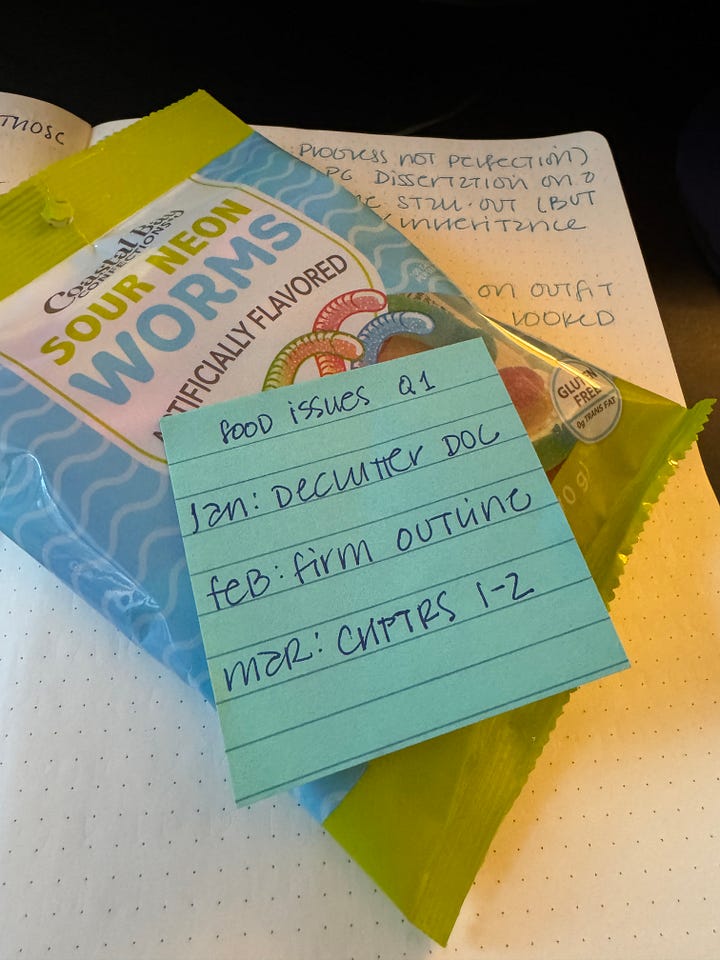 THOSE
PROGRESS NOT PERFECTION)
PG DISSERTATION ON
STAND OUT (BUT
INHERITANCE
ON OUTFIT
LOOKED
Coastal Bay
CONFECTIONS
SOUR NEON
WORMS
ARTIFICIALLY FLAVORED
GLUTEN
FREE
0g TRANS FAT
0 g)
FOOD ISSUES Q1
JAN: DECLUTTER DOC
FEB: FIRM OUTLINE
MAR: CHPTRS 1-2